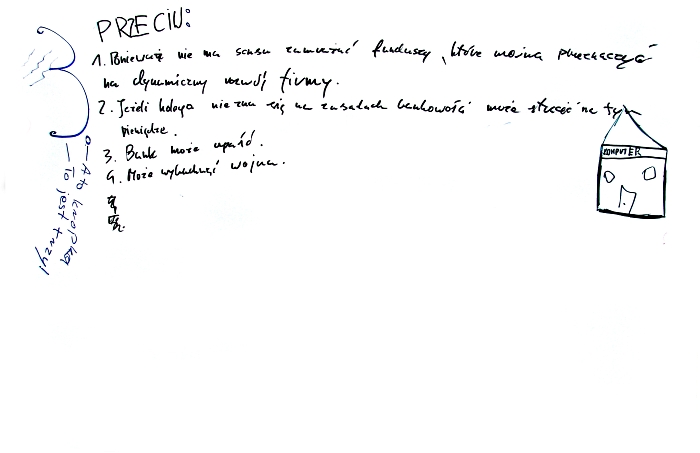 PRZECIW:
1. Ponieważ nie ma sensu zamrażać funduszy, które można przeznaczyć
na dynamiczny rozwój firmy.
2. Jeżeli kolega nie zna się na zasadach bankowości może stracić na tym
pieniądze.
3. Bank może upaść.
4. Może wybuchnąć wojna.
KOMPUTER
3
— A to kropka
— To jest trzy!